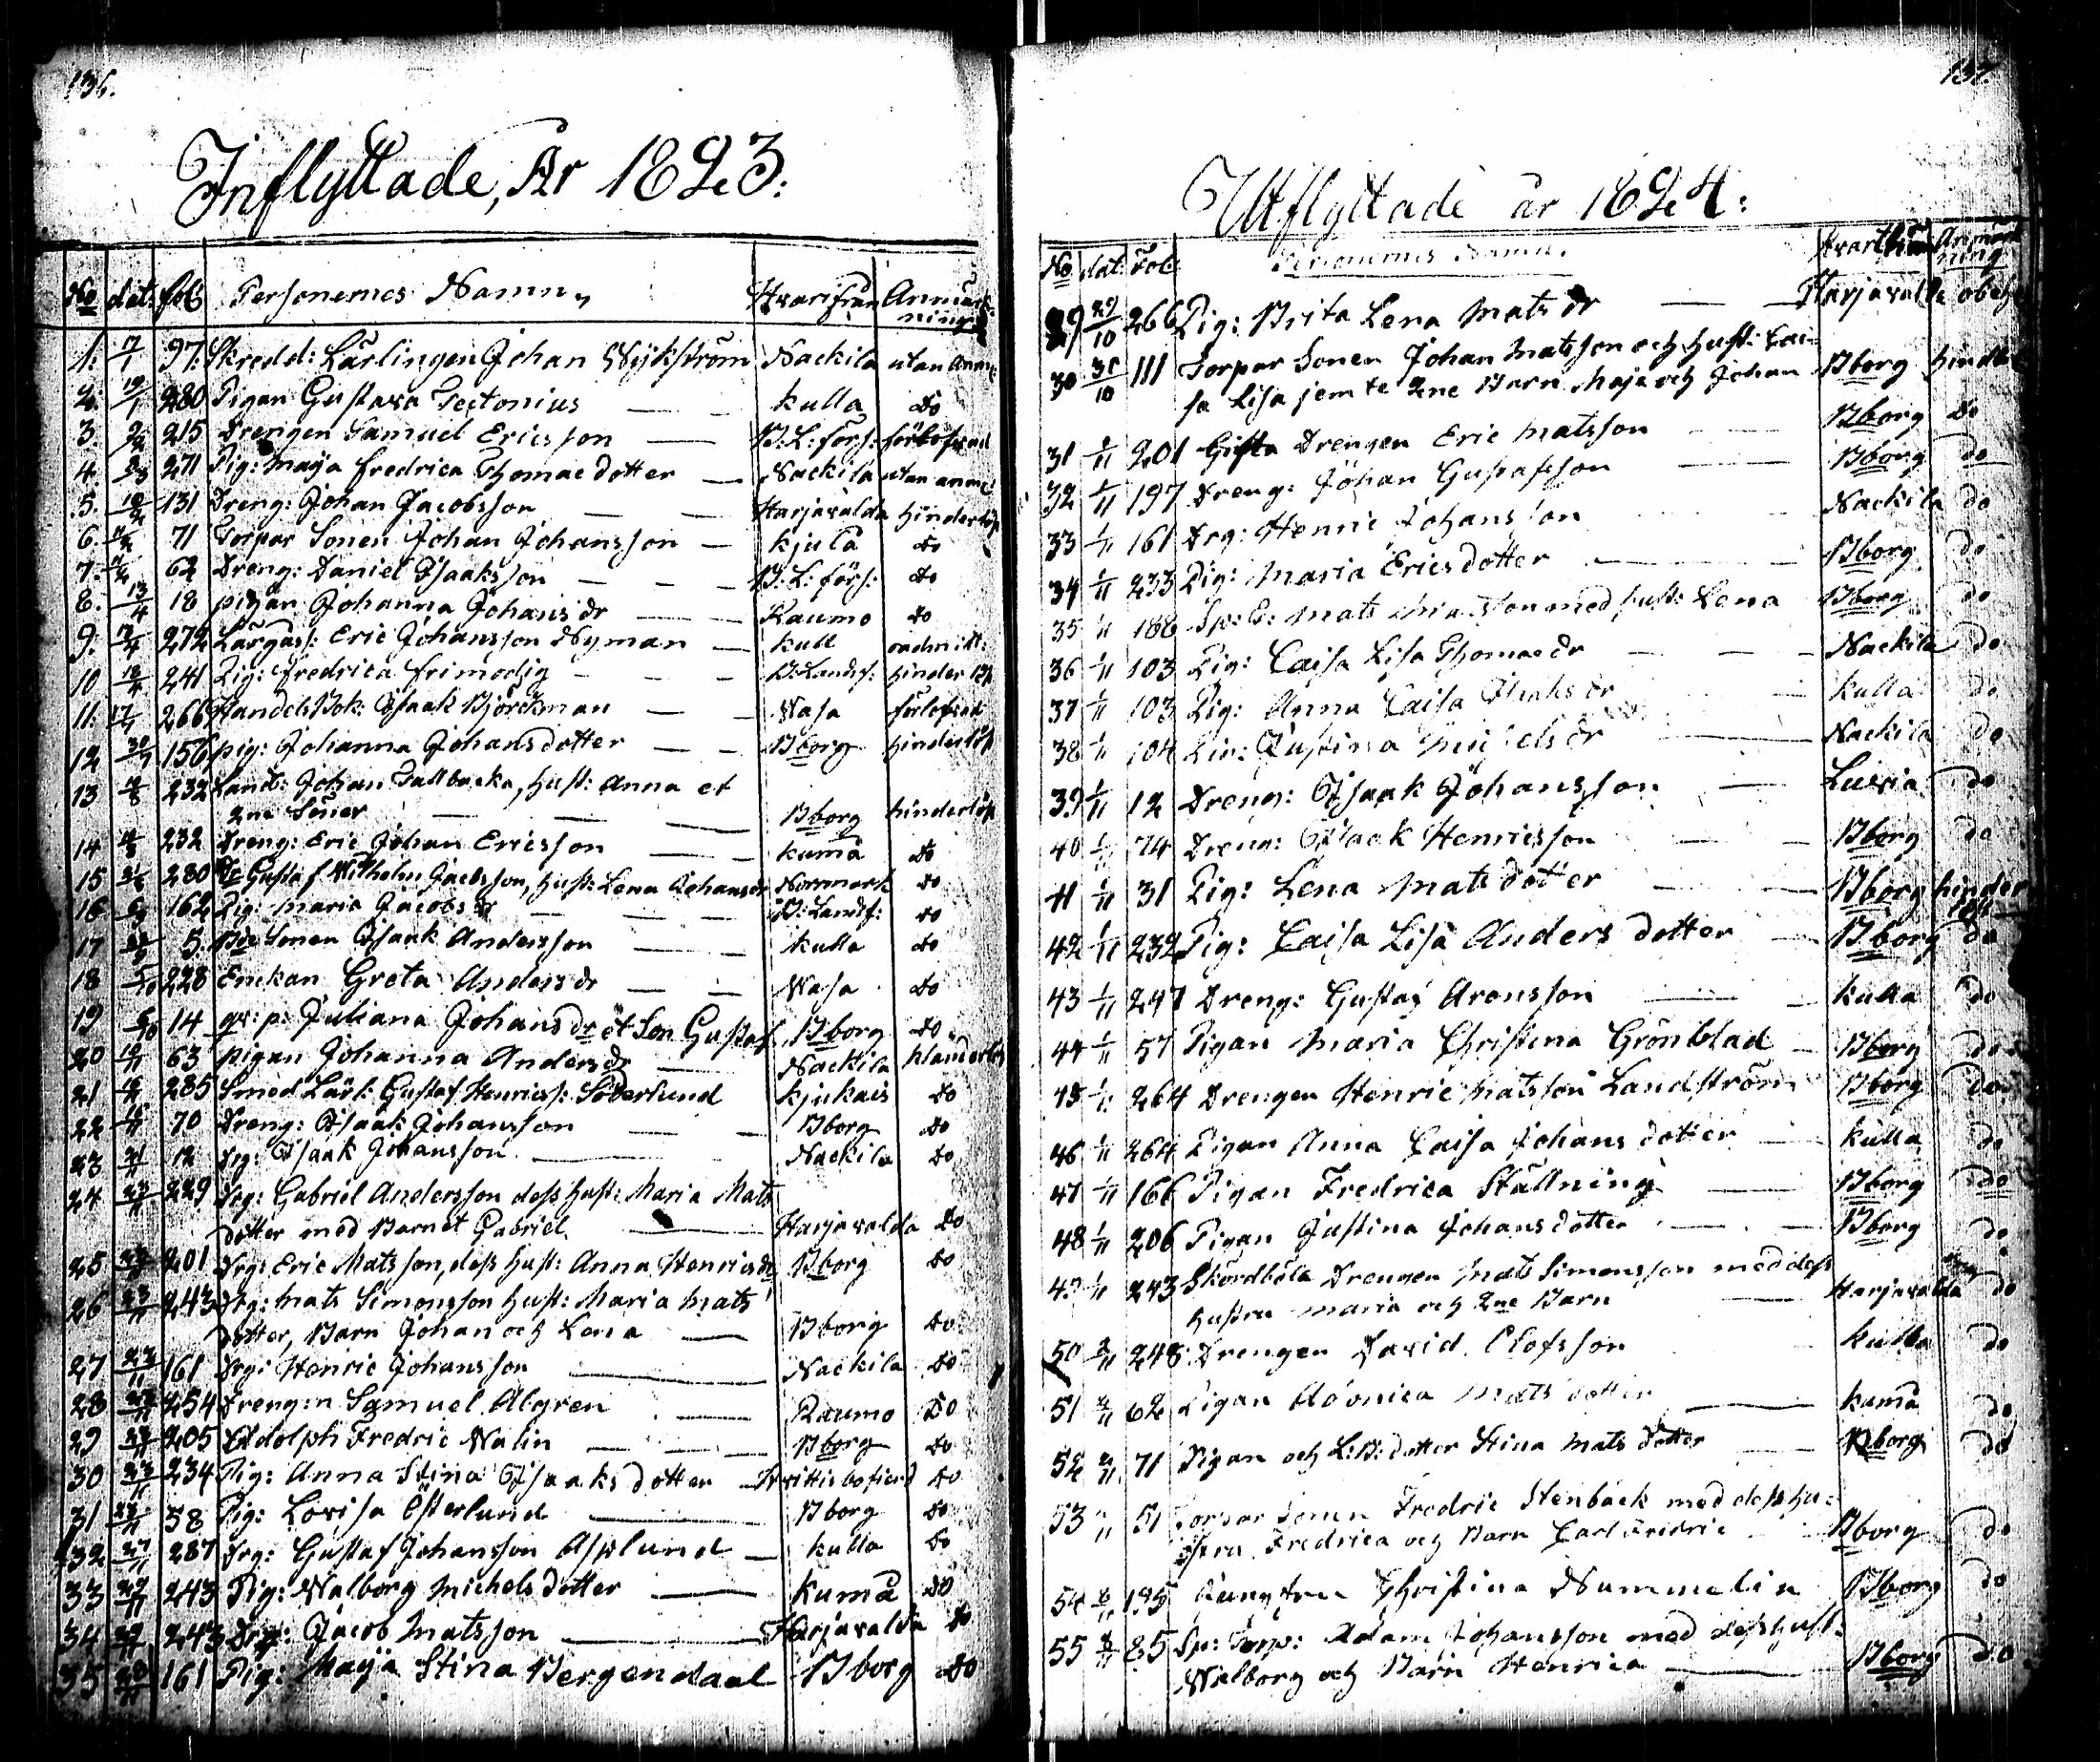 136.
Inflyttade, År 1823:
No dat: fol: Personernes Namn, Hvarifrån Anmärkning
1. 7/1 97. Skredd: Lärlingen Johan Wykström Nackila utan anm:
2. 19/1 280 Pigan Gustava Tectonius — — kulla do
3. 215 Drengen Samuel Ericsson — B:L:förs:
4. 271 Pig: Maja Fredrica Thomaedotter — Nackila utan anm:
5. 131 Dreng: Johan Jacobsson — — Harjavalda hinderlös
6. 71 Torpar Sonen Johan Johansson — kjula do
7. 62 Dreng: Daniel Isaaksson — — — B:L:förs: do
8. 13/4 18 pigan Johanna Johansdr Raumo do
9. 272 Lärgass: Eric Johansson Nyman — kull
10 18/4 241 Pig: Fredrica Frimodig — — — B:Landsf: hinderlös
11. 17/7 266 Handels Bok: Isaak Björckman — — Wasa
12 30/7 156 pig: Johanna Johansdotter — — Bborg hinderlös
13 232 Landb: Johan Tallbacka, hust: Anna et
2ne Söner — — — Bborg hinderlös
14 232 Dreng: Eric Johan Ericsson — — kumå do
15 280 Gustaf Wilhelm Jacobsson, hust: Lena Johansdr Norrmark do
16 162 Pig: Maria Jacobsdr — — — B:Landsf: do
17 5. Sonen Isaak Andersson — — kulla do
18 228 Enckan Greta Andersdr — — Wasa do
19 14 qv: p: Juliana Johansdr et Son Gustaf Bborg do
20 63 pigan Johanna Andersdr — Nackila hinderlös
21 285 Smed Lärl: Gustaf Henricss: Söderlund kjukais do
22 70 Dreng: Isaak Johansson — — Bborg do
23 12 Drg: Isaak Johansson — Nackila do
24 23/11 229 Drg: Gabriel Andersson dess hust: Maria Mats
dotter med Barnet Gabriel. — Harjavalda do
25 23/11 201 Drg: Eric Matsson, dess hust: Anna Henricsdr Bborg do
26 23/11 243 Drg: Mats Simonsson hust: Maria Mats
dotter, Barn Johan och Lena — Bborg do
27 161 Drg: Henric Johansson — Nackila do
28 254 Dreng:n Samuel Algren — Raumo do
29 205 Adolph Fredric Walin — — Bborg do
30 23/11 234 Pig: Anna Stina Isaaksdotter — do
31 23/11 58 Pig: Lovisa Österlund — Bborg do
32 287 Drg: Gustaf Johansson Asplund — kulla do
33 243 Pig: Walborg Michelsdotter — kumå do
34 243 Drg: Jacob Matsson — Harjavalda do
35 161 Pig: Maja Stina Bergendaal Bborg do
137.
Utflyttade år 1824:
No dat: Fol: Personernes Namn. Hvarthän Anmärkning
29 29/10 266 Pig: Brita Lena Matsdr — — Harjavalda
30 111 Torpar Sonen Johan Matsson och hust: Cai-
sa Lisa jemte 2ne Barn Maja och Johan Bborg
31 201 Gifta Drengen Eric Matsson — — Bborg do
32 1/11 197 Dreng: Johan Gustafsson — Bborg do
33 1/11 161 Drg: Henric Johansson Nackila do
34 1/11 233 Pig: Maria Ericsdotter — — Bborg do
35 1/11 188 Mats med hust: Lena Bborg do
36 1/11 103 Pig: Caisa Lisa Thomaedr — — Nackila do
37 1/11 103 Pig: Anna Caisa Isaksdr kulla do
38 1/11 104 Justina Michelsdr — Nackila do
39 1/11 12 Dreng: Isaak Johansson — Luvia do
40 74 Dreng: Isaack Henricsson — Bborg do
41 1/11 31 Pig: Lena Matsdotter — — Bborg
42 1/11 232 Pig: Caisa Lisa Andersdotter — Bborg do
43 1/11 247 Dreng: Gustaf Aronsson — kulla do
44 1/11 57 Pigan Maria Christina Grönblad — Bborg do
45 264 Drengen Henric Matsson Landström Bborg do
46 1/11 264 Pigan Anna Caisa Johansdotter — kulla do
47 1/11 166 Pigan Fredrica Stållning — Bborg do
48 1/11 206 Pigan Justina Johansdotter — — Bborg do
49 1/11 243 Drengen Mats Simonsson med dess
hustru Maria och 2ne Barn — Harjavalda do
50 248 Drengen David Olofsson kulla do
51 62 Pigan Matsdotter — kumå do
52 71 Pigan och L:B: dotter Stina Matsdotter — Bborg do
53 51 Torpar Sonen Fredric Stenback med dess hu-
stru Fredrica och Barn Carl Fredric Bborg do
54 195 Jungfrun Christina Nummelin Bborg do
55 85 Sp: Torp: Adam Johansson med dess hust:
Walborg och Barn Henrica — Bborg do